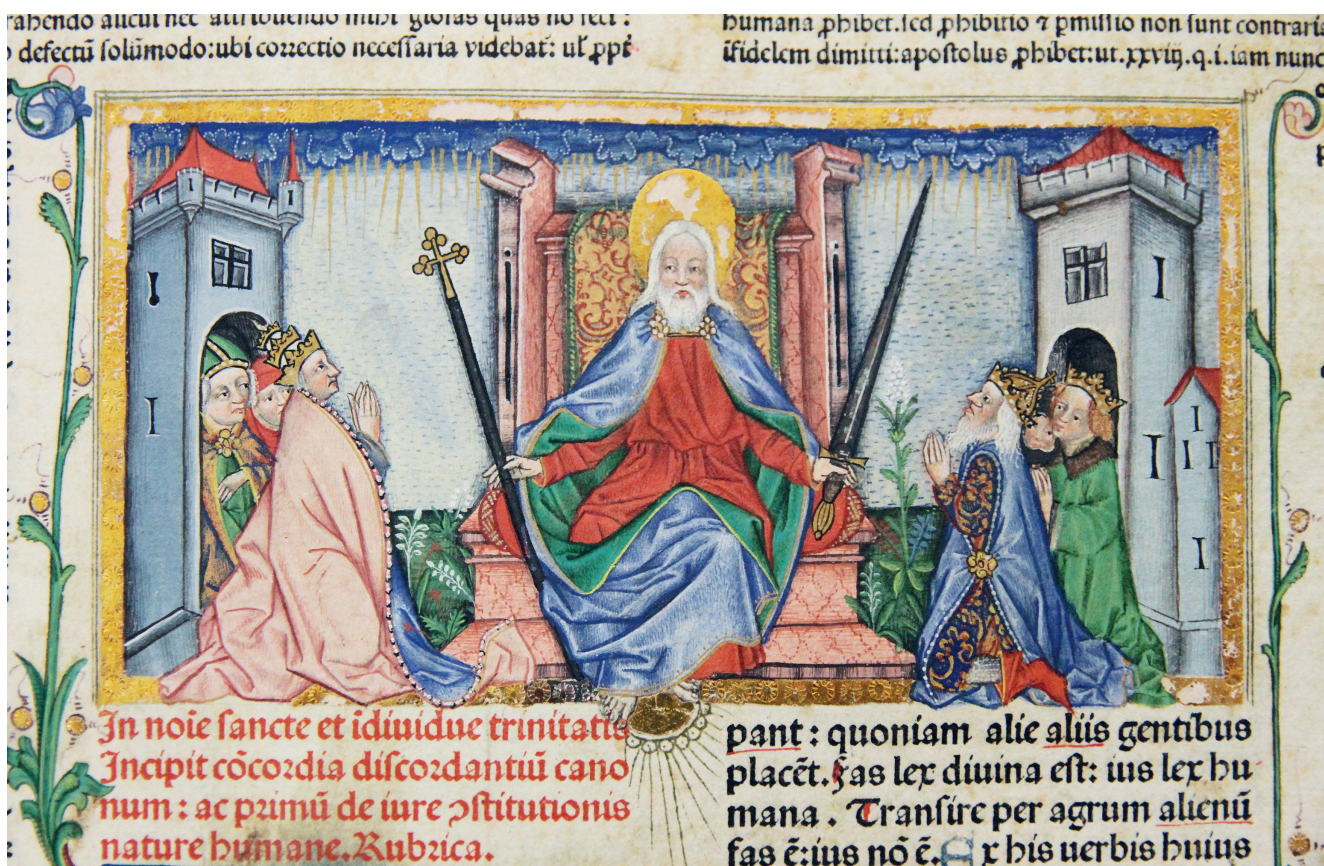 rahendo alicui nec attribuendo mihi glosas quas nō feci:
defectū solūmodo: ubi correctio necessaria videbat̄: ul̄ ꝓpt̄
humana ꝓhibet. sed ꝓhibitio ⁊ ꝑmissio non sunt contrari
īfidelem dimitti: apostolus ꝓhibet: ut. xxviij. q. i. iam nunc
In noīe sancte et īdiuidue trinitatis
Incipit cōcordia discordantiū cano
num: ac primū de iure ↄstitutionis
nature humane. Rubrica.
pant: quoniam alie aliis gentibus
placēt. Fas lex diuina est: ius lex hu
mana. Transire per agrum alienū
fas ē: ius nō ē. Ex his uerbis huius